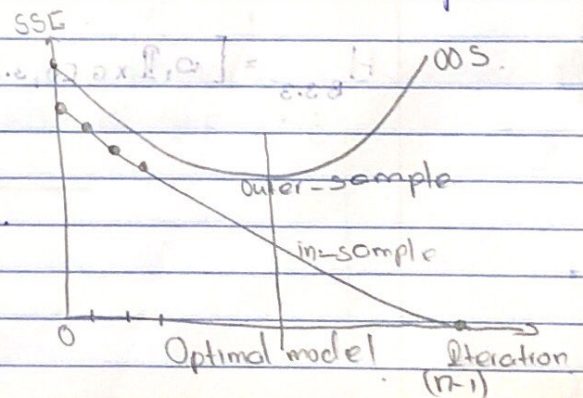 SSE
OOS
outer-sample
in-sample
0
Optimal model
Iteration
(n-1)